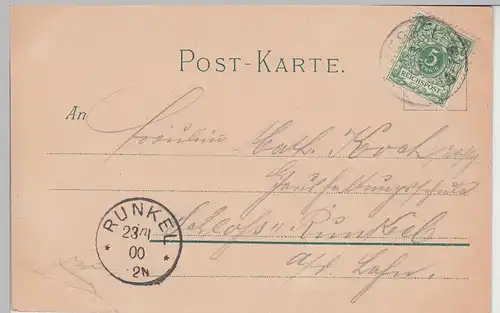 POST-KARTE.
5
REICHSPOST
An
Fräulein Math. Koch
Haushaltungsschule
Schloss Runkel
a/d Lahn.
RUNKEL
23
00
2N